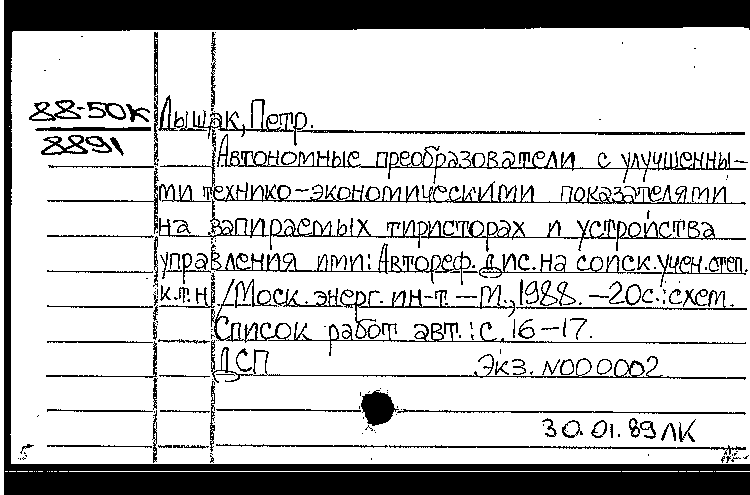 88-50К Лышак, Петр.
8891
Автономные преобразователи с улучшенны-
ми технико-экономическими показателями
на запираемых тиристорах и устройства
управления ими: Автореф. Дис. на соиск. учен. степ.
к.т.н /Моск. энерг. ин-т. — М., 1988. — 20с.: схем.
Список работ авт.: с. 16-17.
ДСП Экз. N000002
30.01.89 ЛК
5